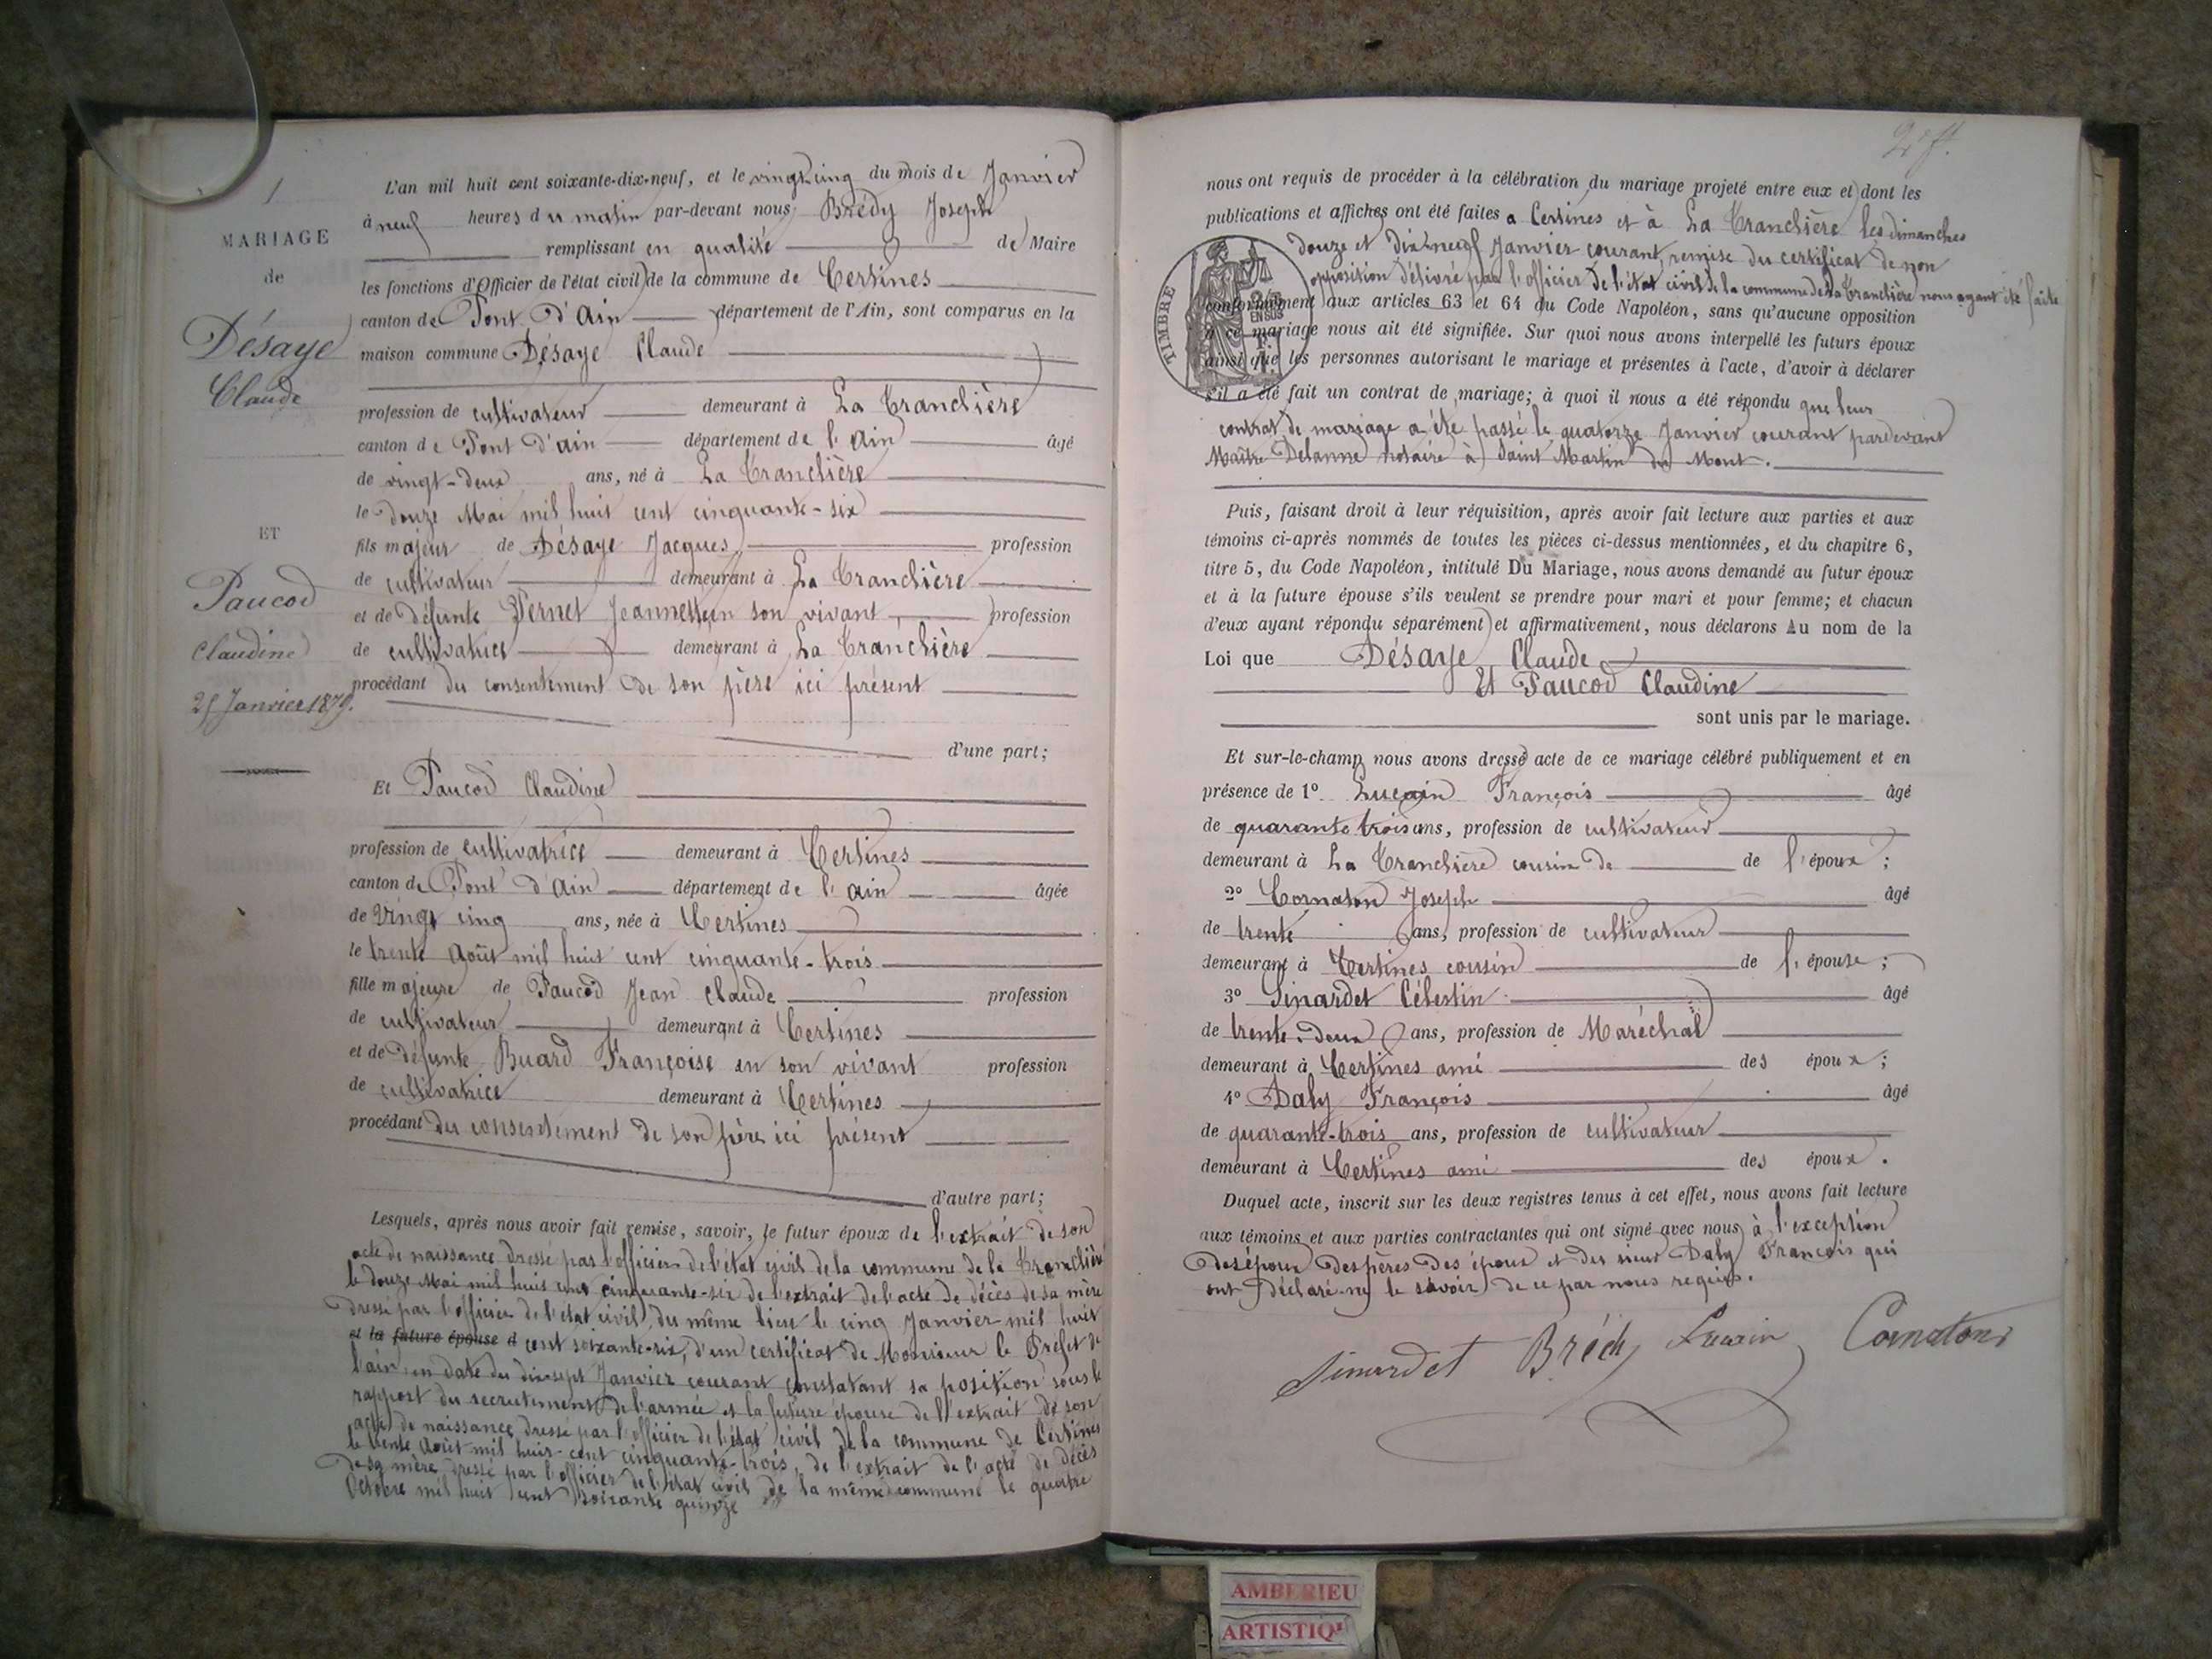 1
MARIAGE
de
Désaye
Claude
ET
Paucod
Claudine
25 Janvier 1879.
L'an mil huit cent soixante-dix-neuf, et le vingt cinq du mois de Janvier
à neuf heures du matin par-devant nous Brédy Joseph
remplissant en qualité de Maire
les fonctions d'Officier de l'état civil de la commune de Certines
canton de Pont d'Ain département de l'Ain, sont comparus en la
maison commune Désaye Claude
profession de cultivateur demeurant à La Tranclière
canton de Pont d'ain département de l'Ain âgé
de vingt-deux ans, né à La Tranclière
le douze Mai mil huit cent cinquante-six
fils majeur de Désaye Jacques profession
de cultivateur demeurant à La Tranclière
et de défunte Pernet Jeannette en son vivant profession
de cultivatrice demeurant à La Tranclière
procédant du consentement de son père ici présent
d'une part;
Et Paucod Claudine
profession de cultivatrice demeurant à Certines
canton de Pont d'Ain département de l'ain âgée
de vingt cinq ans, née à Certines
le trente Août mil huit cent cinquante-trois
fille majeure de Paucod Jean Claude profession
de cultivateur demeurant à Certines
et de défunte Buard Françoise en son vivant profession
de cultivatrice demeurant à Certines
procédant du consentement de son père ici présent
d'autre part;
Lesquels, après nous avoir fait remise, savoir, le futur époux de l'extrait de son
acte de naissance dressé par l'officier de l'état civil de la commune de la Tranclière
le douze Mai mil huit cent cinquante-six de l'extrait de l'acte de décès de sa mère
dressé par l'officier de l'état civil du même lieu le cinq Janvier mil huit
et la future épouse d cent soixante-six, d'un certificat de Monsieur le Préfet de
l'ain en date du dix-sept Janvier courant constatant sa position sous le
rapport du recrutement de l'armée et la future épouse de l'extrait de son
acte de naissance dressé par l'officier de l'état civil de la commune de Certines
le trente Août mil huit-cent cinquante-trois, de l'extrait de l'acte de décès
de sa mère dressé par l'officier de l'état civil de la même commune le quatre
Octobre mil huit cent soixante quinze
nous ont requis de procéder à la célébration du mariage projeté entre eux et dont les
publications et affiches ont été faites a Certines et à La Tranclière les dimanches
douze et dix-neuf Janvier courant, remise du certificat de non
opposition délivré par l'officier de l'état civil de la commune de la Tranclière nous ayant été faite
conformément aux articles 63 et 64 du Code Napoléon, sans qu'aucune opposition
à ce mariage nous ait été signifiée. Sur quoi nous avons interpellé les futurs époux
ainsi que les personnes autorisant le mariage et présentes à l'acte, d'avoir à déclarer
s'il a été fait un contrat de mariage; à quoi il nous a été répondu que leur
contrat de mariage a été passé le quatorze Janvier courant pardevant
Maître Delanne notaire à Saint Martin du Mont.
TIMBRE
EN SUS
Puis, faisant droit à leur réquisition, après avoir fait lecture aux parties et aux
témoins ci-après nommés de toutes les pièces ci-dessus mentionnées, et du chapitre 6,
titre 5, du Code Napoléon, intitulé Du Mariage, nous avons demandé au futur époux
et à la future épouse s'ils veulent se prendre pour mari et pour femme; et chacun
d'eux ayant répondu séparément et affirmativement, nous déclarons Au nom de la
Loi que Désaye Claude
Et Paucod Claudine
sont unis par le mariage.
Et sur-le-champ nous avons dressé acte de ce mariage célébré publiquement et en
présence de 1º Lucain François âgé
de quarante trois ans, profession de cultivateur
demeurant à La Tranclière cousin de de l'époux;
2º Cornaton Joseph âgé
de trente ans, profession de cultivateur
demeurant à Certines cousin de l'épouse;
3º Sinardet Célestin âgé
de trente-deux ans, profession de Maréchal
demeurant à Certines ami des époux;
4º Daly François âgé
de quarante-trois ans, profession de cultivateur
demeurant à Certines ami des époux.
Duquel acte, inscrit sur les deux registres tenus à cet effet, nous avons fait lecture
aux témoins et aux parties contractantes qui ont signé avec nous à l'exception
des époux des pères des époux et du sieur Daly François qui
ont déclaré ne le savoir de ce par nous requis.
Sinardet Brédy Lucain Cornaton
AMBERIEU
ARTISTIQ